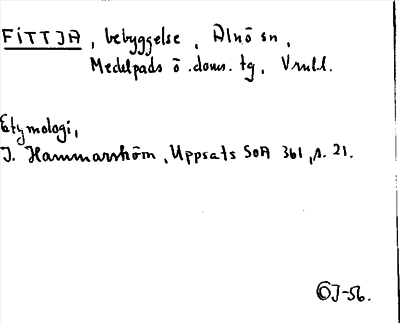 FITTJA, bebyggelse, Alnö sn,
Medelpads ö. doms. tg, Vrnll.
Etymologi,
I. Hammarström, Uppsats SOA 361, s. 21.
OJ-56.